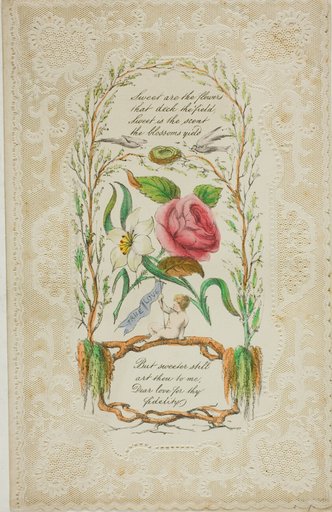 Sweet are the flowers
that deck the field,
Sweet is the scent
the blossoms yield
But sweeter still
art thou to me,
Dear love for thy
fidelity